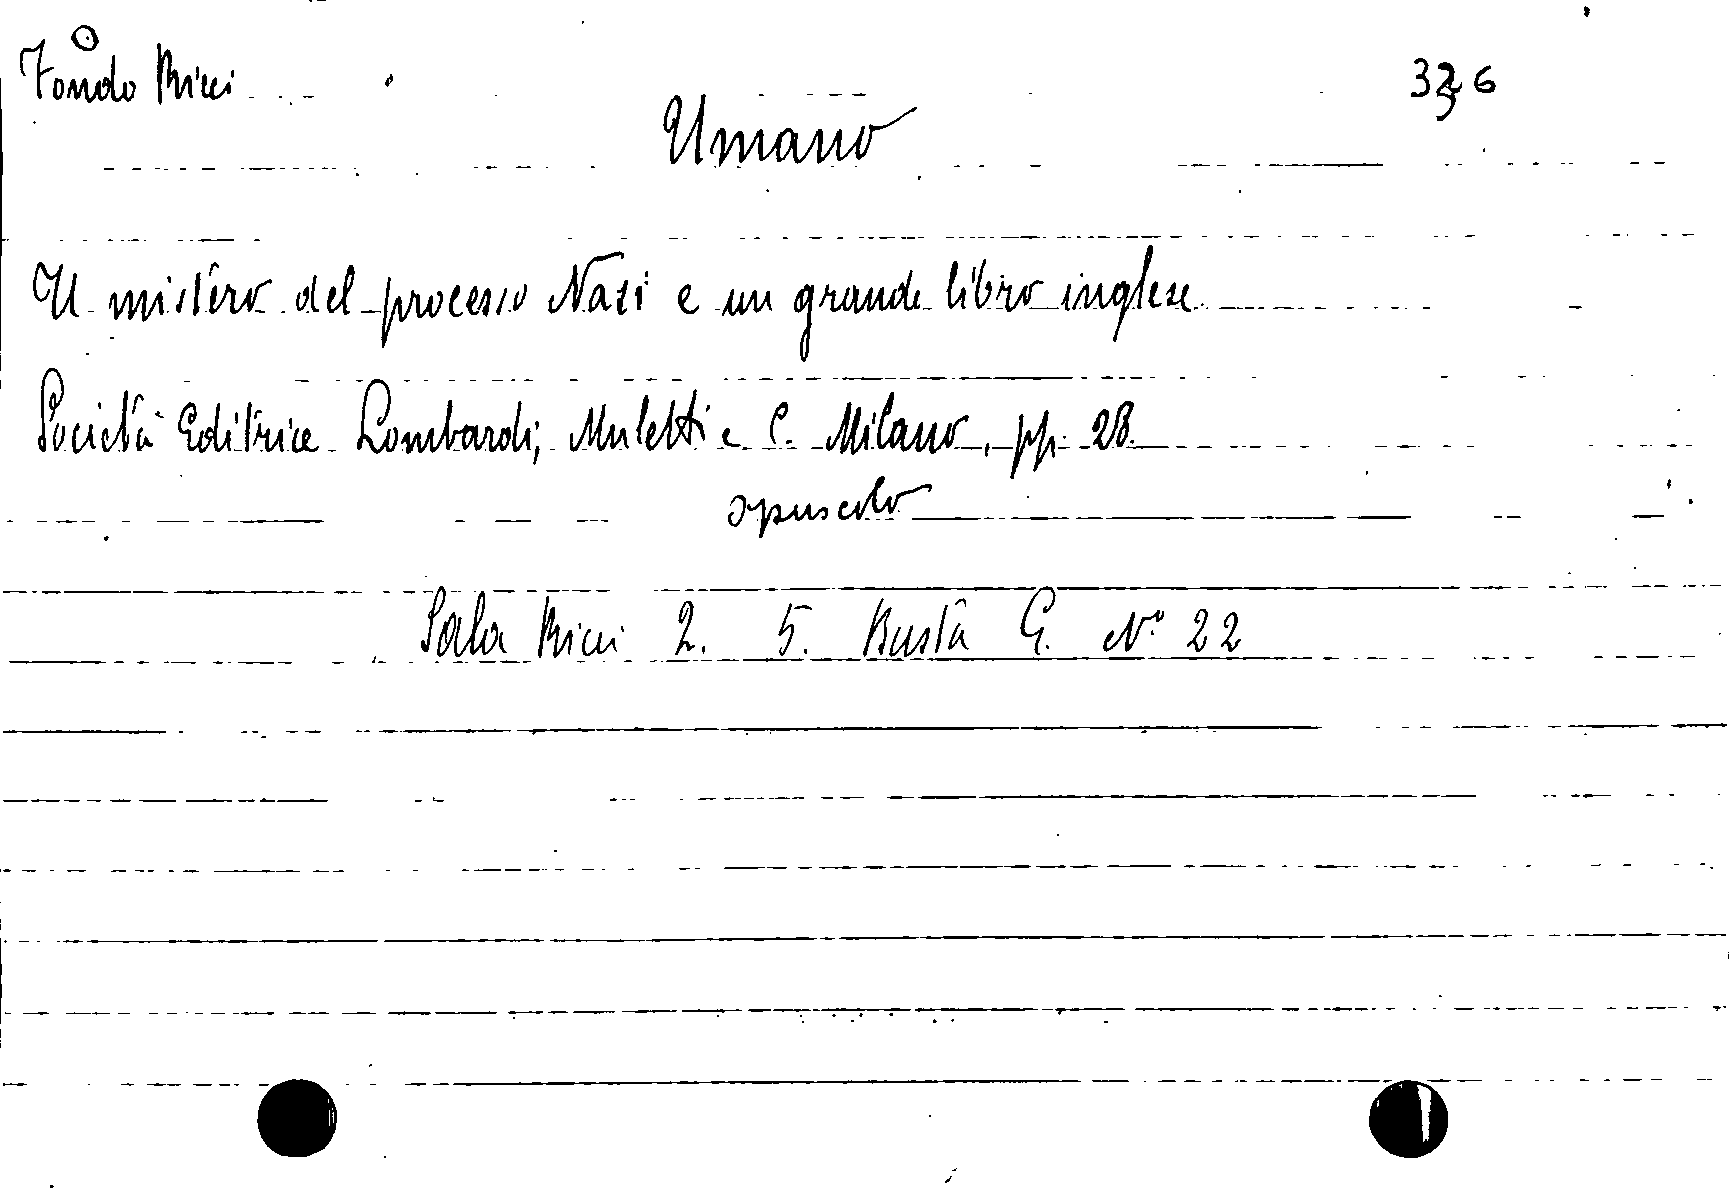 Fondo Ricci
Umano
Il mistero del processo Nasi e un grande libro inglese
Società Editrice Lombardi, Muletti e C. Milano, pp. 28.
opuscolo
Sala Ricci 2. 5. Busta G. N.° 22